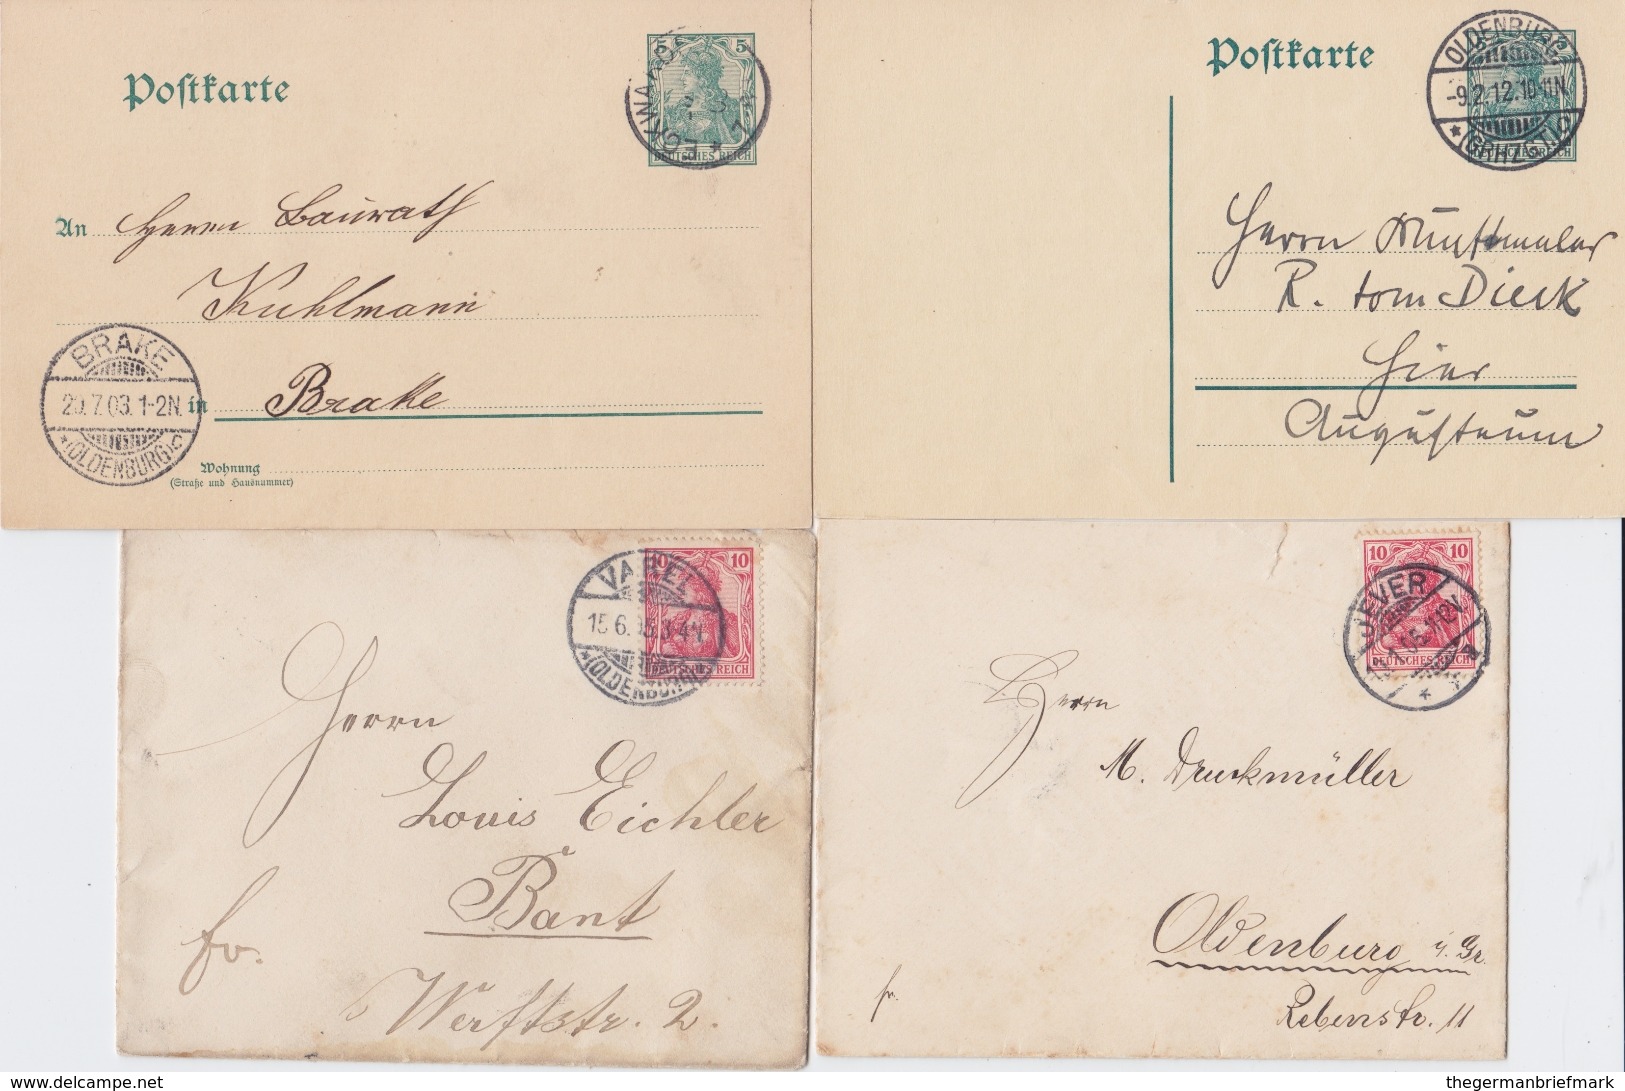 Postkarte
5 5
ECKWARDEN
DEUTSCHES REICH
An Herrn Baurath
Kuhlmann
BRAKE
20.7.03.1-2N.
*(OLDENBURG)c
in Brake
Wohnung
(Straße und Hausnummer)
Postkarte
OLDENBURG
-9.2.12.10-11N
*(GRHZGT.)c
Herrn
R. tom Dieck
Hier
Augusteum
10 10
VAREL
15.6.05.3-4N.
*(OLDENBURG)
DEUTSCHES REICH
Herrn
Louis Eichler
Bant
fr.
Werftstr. 2.
10 10
JEVER
DEUTSCHES REICH
Herrn
M. Druckmüller
Oldenburg i. Gr.
fr.
Rebenstr. 11
www.delcampe.net
thegermanbriefmark